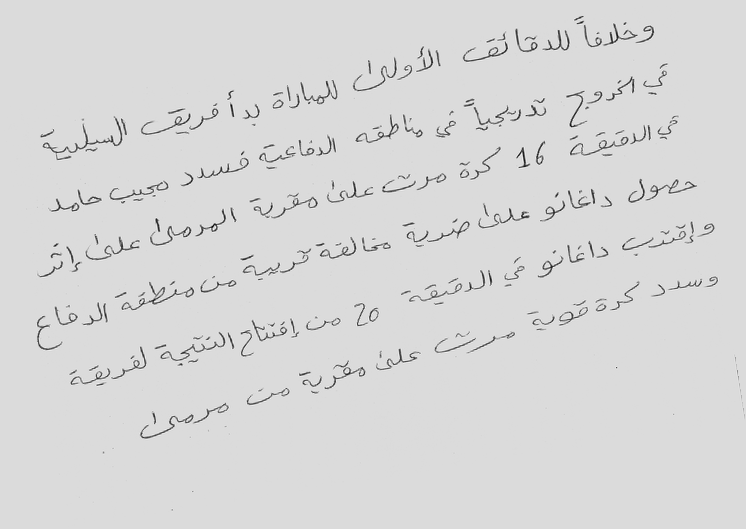 وخلافاً للدقائق الأولى للمباراة بدأ فريق السيلية
في الخروج تدريجياً في مناطقه الدفاعية فسدد مجيب حامد
في الدقيقة 16 كرة مرت على مقربة المرمى على إثر
حصول داغانو على ضربة مخالفة قريبة من منطقة الدفاع
وإقترب داغانو في الدقيقة 20 من إفتتاح النتيجة لفريقة
وسدد كرة قوية مرت على مقربة من مرمى